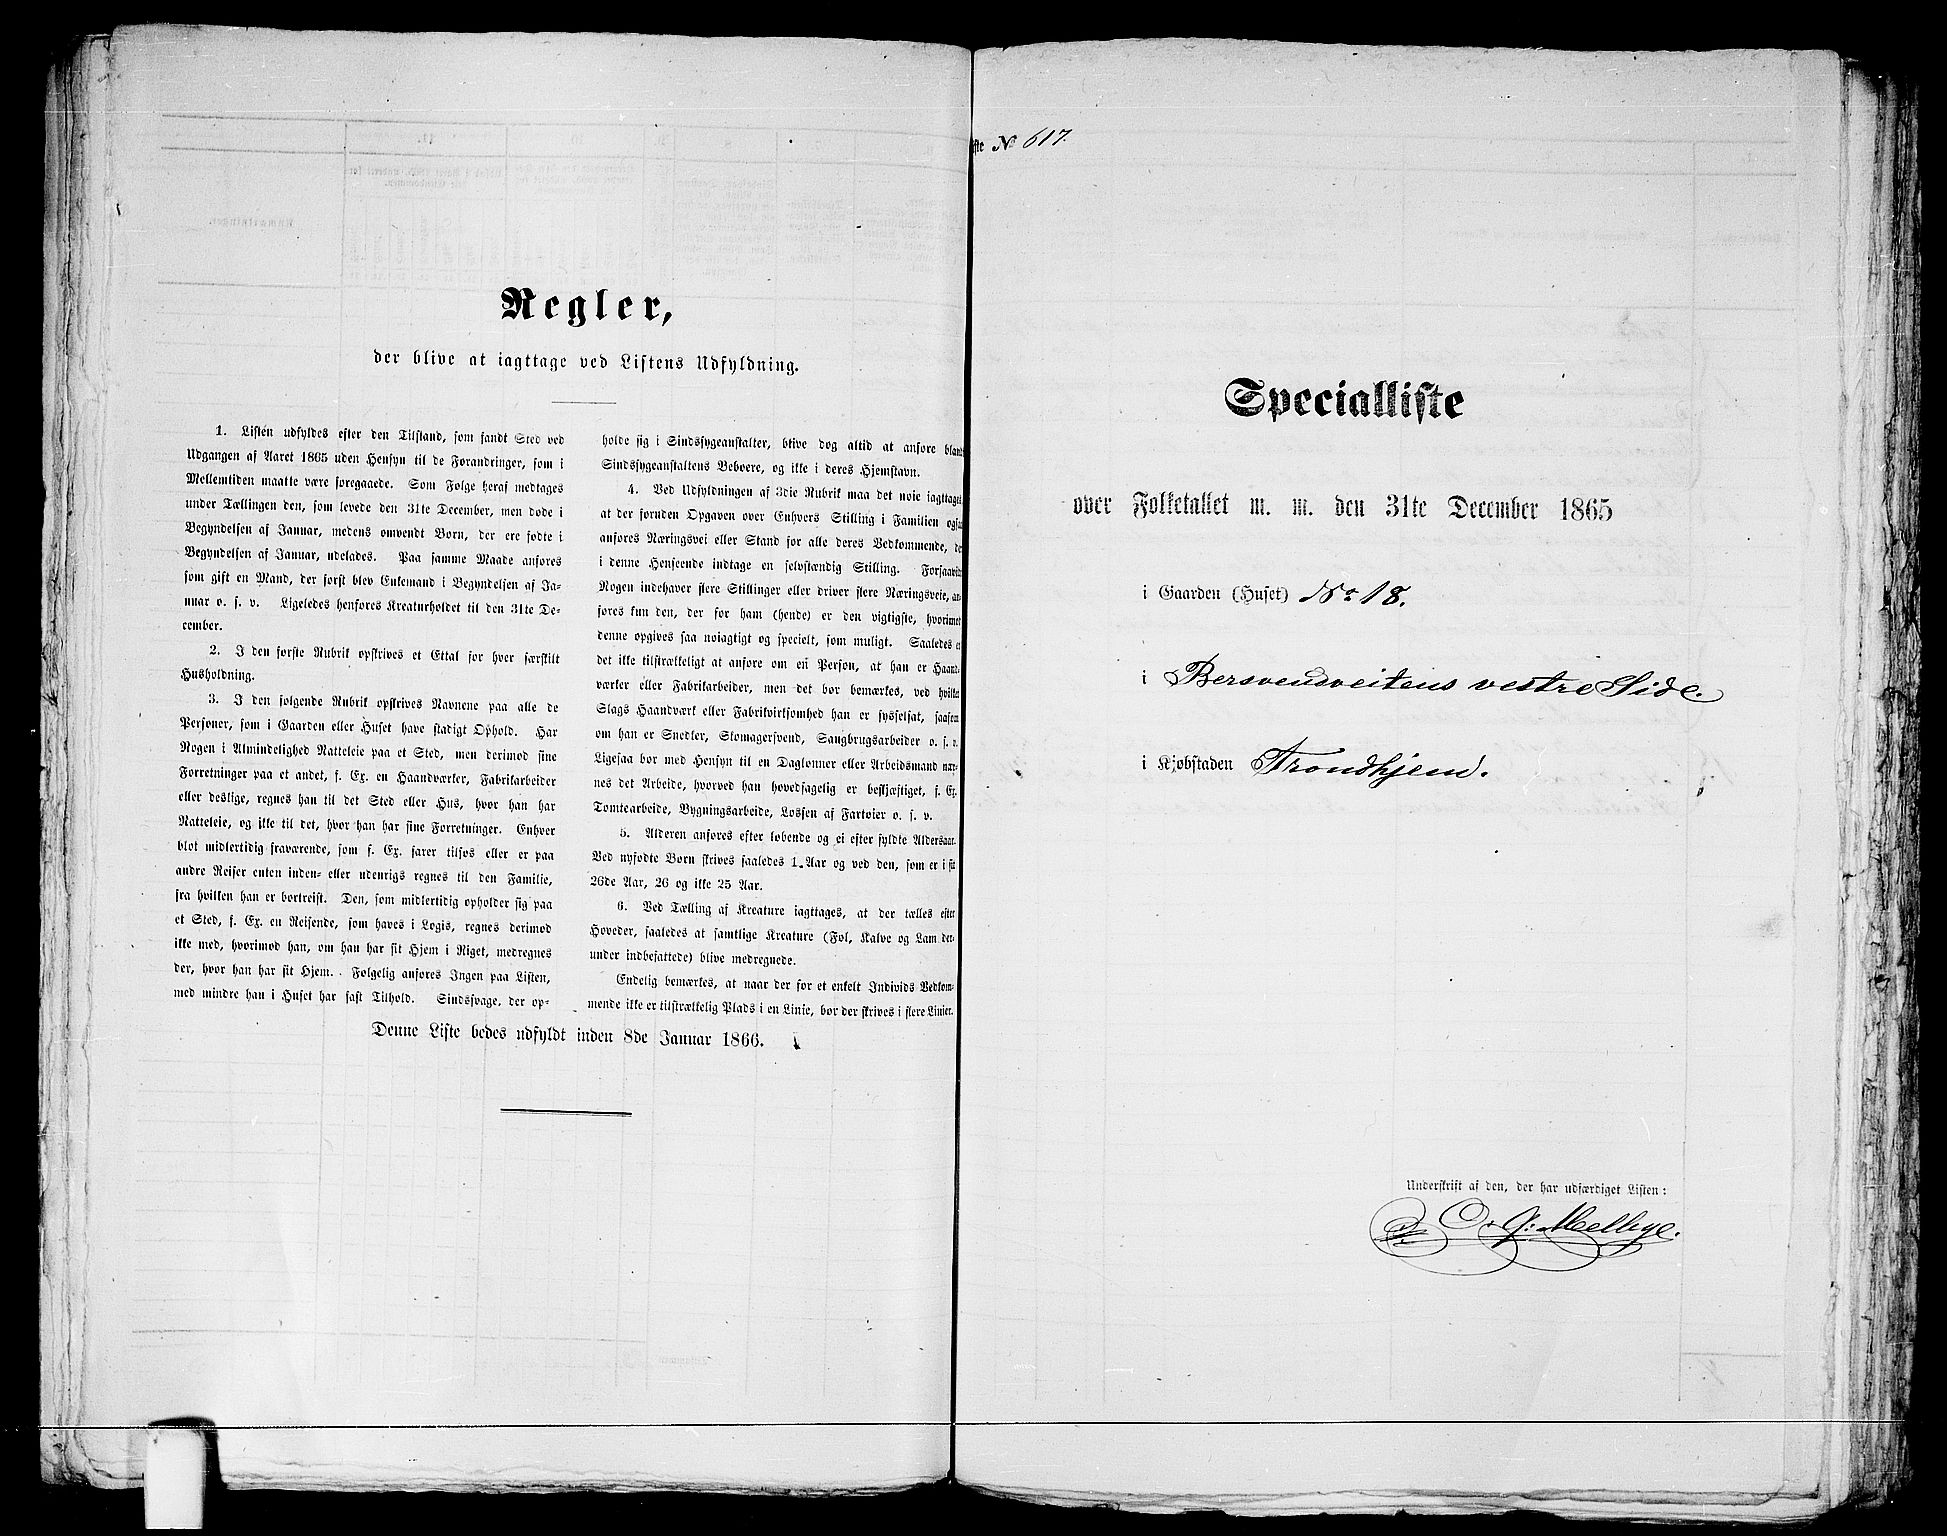 Regler,
der blive at iagttage ved Listens Udfyldning.
1. Listen udfyldes efter den Tilstand, som fandt Sted ved
Udgangen af Aaret 1865 uden Hensyn til de Forandringer, som i
Mellemtiden maatte være foregaaede. Som Følge heraf medtages
under Tællingen den, som levede den 31te December, men døde i
Begyndelsen af Januar, medens omvendt Børn, der ere fødte i
Begyndelsen af Januar, udelades. Paa samme Maade anføres
som gift en Mand, der først blev Enkemand i Begyndelsen af Ja-
nuar o. s. v. Ligeledes henføres Kreaturholdet til den 31te De-
cember.
2. I den første Rubrik opskrives et Ettal for hver særskilt
Husholdning.
3. I den følgende Rubrik opskrives Navnene paa alle de
Personer, som i Gaarden eller Huset have stadigt Ophold. Har
Nogen i Almindelighed Natteleie paa et Sted, men derimod sine
Forretninger paa et andet, f. Ex. en Haandværker, Fabrikarbeider
eller deslige, regnes han til det Sted eller Hus, hvor han har
Natteleie, og ikke til det, hvor han har sine Forretninger. Enhver
blot midlertidig fraværende, som f. Ex. farer tilsøs eller er paa
andre Reiser enten inden- eller udenrigs regnes til den Familie,
fra hvilken han er bortreist. Den, som midlertidig opholder sig paa
et Sted, f. Ex. en Reisende, som haves i Logis, regnes derimod
ikke med, hvorimod han, om han har sit Hjem i Riget, medregnes
der, hvor han har sit Hjem. Følgelig anføres Ingen paa Listen,
med mindre han i Huset har fast Tilhold. Sindssvage, der op-
holde sig i Sindssygeanstalter, blive dog altid at anføre bland
Sindssygeanstaltens Beboere, og ikke i deres Hjemstavn.
4. Ved Udfyldningen af 3die Rubrik maa det nøie iagttages
at der foruden Opgaven over Enhvers Stilling i Familien ogsaa
anføres Næringsvei eller Stand for alle deres Vedkommende, de
i denne Henseende indtage en selvstændig Stilling. Forsaavidt
Nogen indehaver flere Stillinger eller driver flere Næringsveie, an-
føres kun den, der for ham (hende) er den vigtigste, hvorimet
denne opgives saa nøiagtigt og specielt, som muligt. Saaledes er
det ikke tilstrækkeligt at anføre om en Person, at han er Haand-
værker eller Fabrikarbeider, men det bør bemærkes, ved hvilket
Slags Haandværk eller Fabrikvirksomhed han er sysselsat, saasom
om han er Snedker, Skomagersvend, Saugbrugsarbeider o. s. v.
Ligesaa bør med Hensyn til en Daglønner eller Arbeidsmand næv-
nes det Arbeide, hvorved han hovedsagelig er beskjæftiget, f. Ex.
Tomtearbeide, Bygningsarbeide, Lossen af Fartøier o. s. v.
5. Alderen anføres efter løbende og ei efter fyldte Aldersaar.
Ved nyfødte Børn skrives saaledes 1. Aar og ved den, som er i sit
26de Aar, 26 og ikke 25 Aar.
6. Ved Tælling af Kreature iagttages, at der tælles efter
Hoveder, saaledes at samtlige Kreature (Føl, Kalve og Lam der-
under indbefattede) blive medregnede.
Endelig bemærkes, at naar der for et enkelt Individs Vedkom-
mende ikke er tilstrækkelig Plads i en Linie, bør der skrives i flere Linier.
Denne Liste bedes udfyldt inden 8de Januar 1866.
iste № 617.
Specialliste
over Folketallet m. m. den 31te December 1865
i Gaarden (Huset) No 18.
i Bersvensveitens vestre Side.
i Kjøbstaden Trondhjem.
Underskrift af den, der har udfærdiget Listen:
C. J. Melbye.